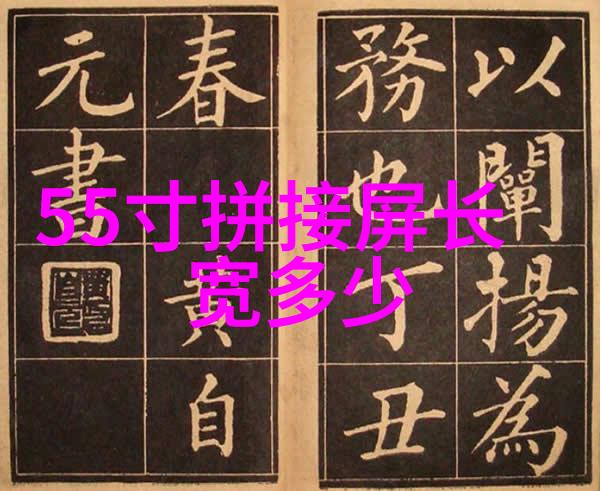 55寸拼接屏长
宽多少
以闡揚為
務也丁丑
春
黄自
元書